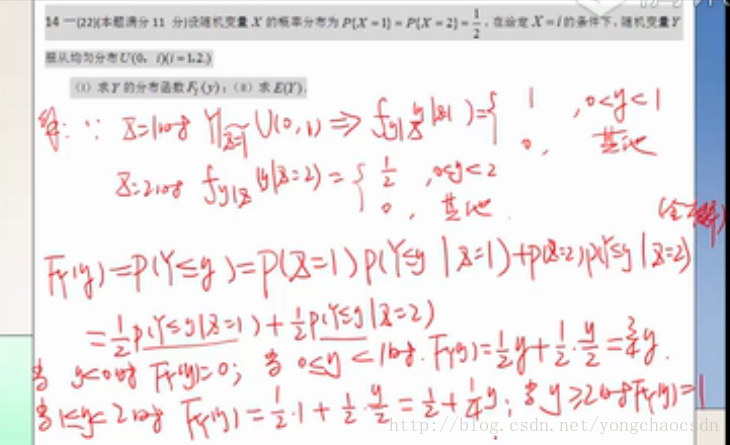 14 一(22)(本题满分11 分)设随机变量 X 的概率分布为 P{X=1}=P{X=2}=1/2, 在给定 X=i 的条件下, 随机变量 Y
服从均匀分布 U(0, i)(i=1,2.)
(Ⅰ) 求 Y 的分布函数 F_Y(y); (Ⅱ) 求 E(Y).
解: ∵ X=1时 Y|X=1 ~ U(0,1) ⇒ f_{Y|X}(y|x=1)={ 1, 0<y<1
0, 其他
X=2时 f_{Y|X}(y|X=2)={ 1/2, 0<y<2
0, 其他.
F_Y(y)=P(Y≤y)=P(X=1)P(Y≤y|X=1)+P(X=2)P(Y≤y|X=2)
=1/2 P(Y≤y|X=1)+1/2 P(Y≤y|X=2)
当 y<0时 F_Y(y)=0; 当 0≤y<1时. F_Y(y)=1/2 y+1/2·y/2=3/4 y.
当 1≤y<2时 F_Y(y)=1/2·1+1/2·y/2=1/2+1/4 y; 当 y≥2时 F_Y(y)=1
http://blog.csdn.net/yongchaocsdn